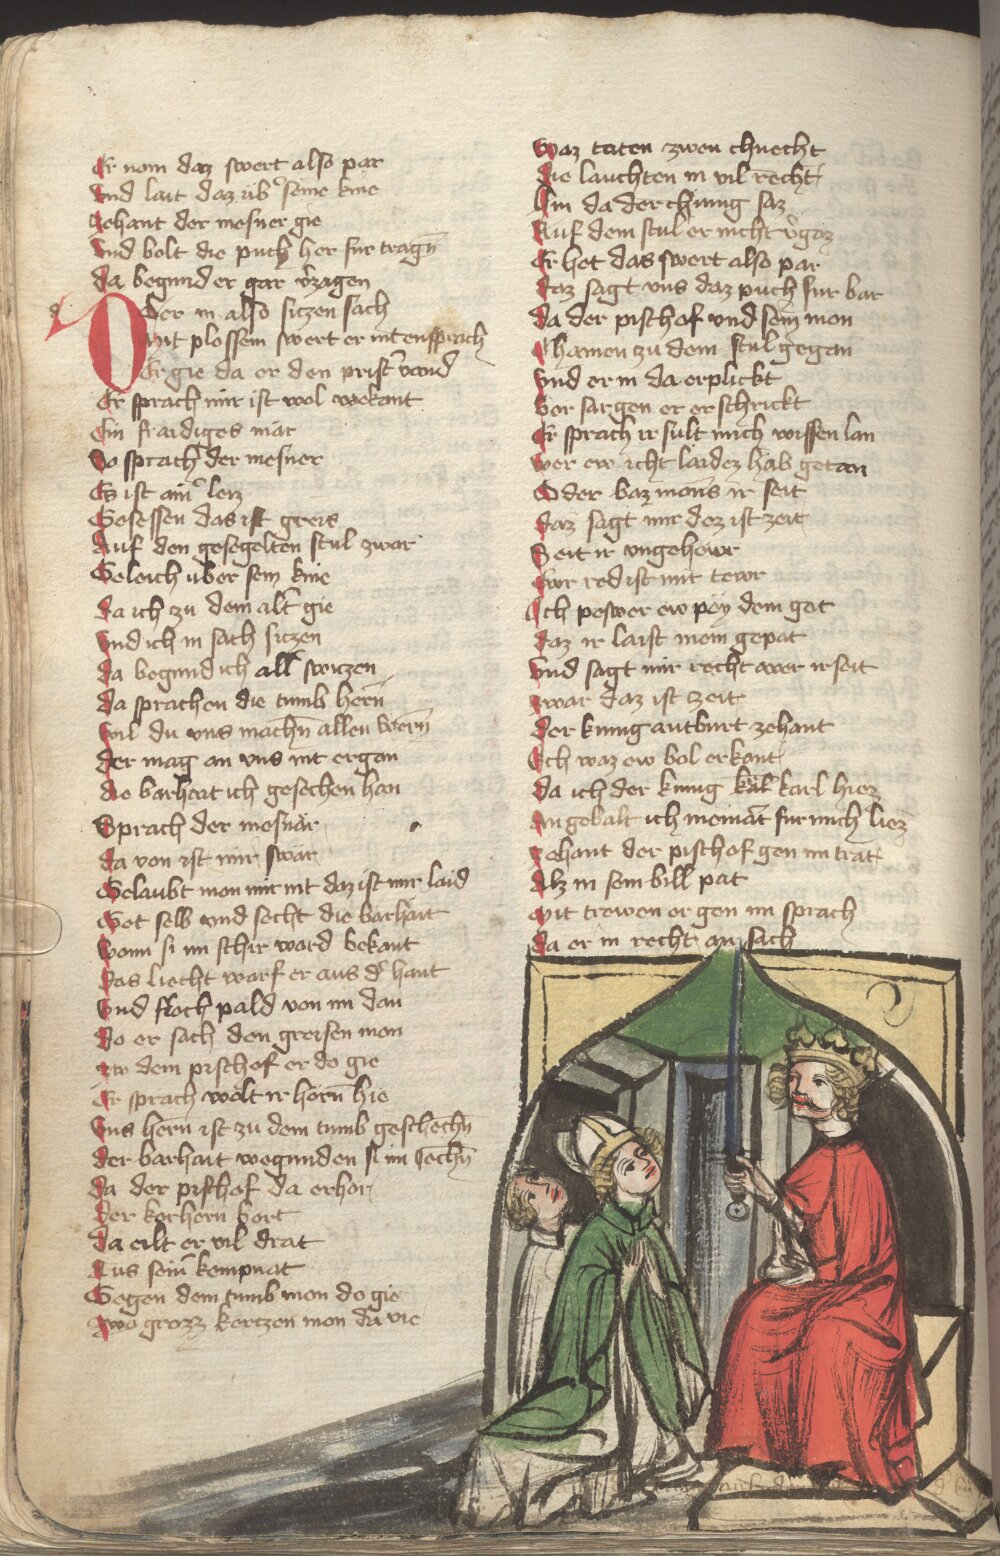 Er nom daz swert also par
Vnd lait daz vb͛ seine knie
Zehant der mesner gie
Vnd bolt die puch her fur tragn̄
da begund er gar v͛zagen
Der in also sitzen sach
Mit plossem swert er int ensprach
Er gie da er den prist͛ vand
Er sprach mir ist wol wekant
Ein fraidiges mär
Do sprach der mesner
Es ist ain͛ leiz
Gesessen das ist greis
Auf den gesegelten stul zwar
Geleich uber sein knie
da ich zu dem alt͛ gie
Vnd ich in sach sitzen
da begund ich all swizen
da sprachen die tumb hern̄
wil du vns machn̄ allen wern̄
der mag an vns nit ergan
die barhait ich gesechen han
Sprach der mesnär
da von ist mir swär
Gelaubt mon mir nit daz ist mir laid
Get selb vnd secht die barhait
Wann si im schir ward bekant
Das liecht warf er aus d͛ hant
Vnd floch pald von im dan
do er sach den greisen mon
zw dem pischof er do gie
Er sprach wolt ir hörn̄ hie
Vns hern̄ ist zu dem tumb geschechn̄
der barhait wegunden si im jechn̄
da der pischof da erhor
der korhern bort
da eilt er vil drat
Aus sein͛ kempnat
Gegen dem tumb mon do gie
zwo grozz kertzen mon da vie
Waz taten zwen chnecht
die lauchten in vil recht
Hin da der chunig saz
Auf dem stul er nicht v͛gaz
Er het das swert also par
daz sagt vns daz puch fur bar
da der pischof vnd sein mon
Chamen zu dem stul gegan
Vnd er in da erplickt
Vor sargen er erschrickt
Er sprach ir sult mich wissen lan
wer ew icht laidez hab getan
Oder baz mans ir seit
daz sagt mir dez ist zeit
Seit ir vngehewr
Ewr red ist mit tewr
Ich peswer ew pey dem got
daz ir laist mein gepat
Vnd sagt mir recht wer ir seit
zwar daz ist zeit
der kunig antburt zehant
Ich waz ew bol erkant
da ich der kunig karl hiez
An gebalt ich niemāt fur mich liez
zehant der pischof gen im trat
Alz in sein bill pat
Mit trewen er gen im sprach
da er in recht an sach